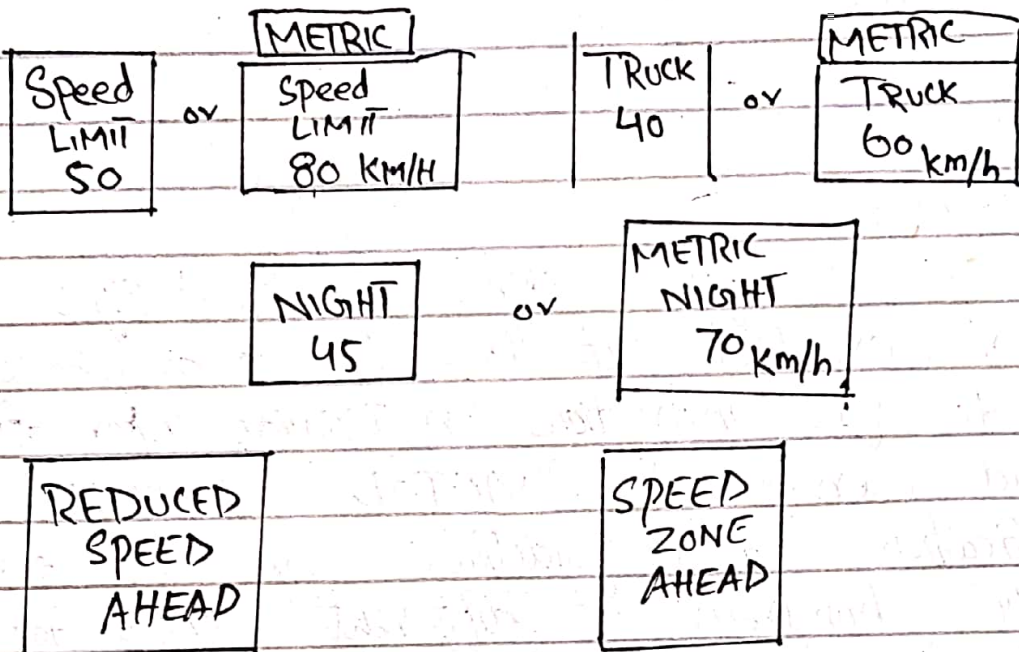 Speed
LIMIT
50
or
METRIC
Speed
LIMIT
80 KM/H
TRUCK
40
or
METRIC
TRUCK
60 km/h
NIGHT
45
or
METRIC
NIGHT
70 km/h
REDUCED
SPEED
AHEAD
SPEED
ZONE
AHEAD